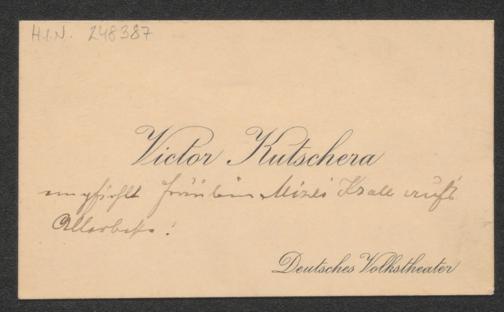 H.I.N. 248387
Victor Kutschera
empfiehlt Fräulein Mizzi Krall aufs
Allerbeste!
Deutsches Volkstheater